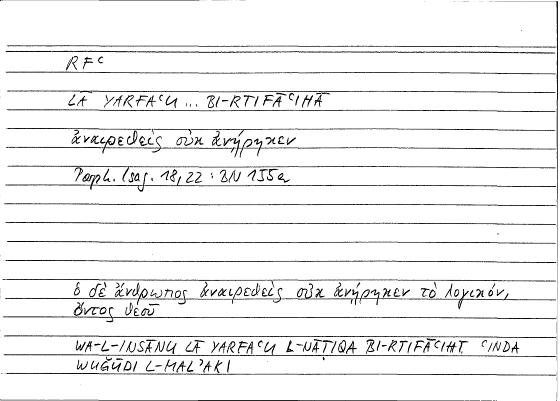 RFᶜ
LĀ YARFAᶜU ... BI-RTIFĀᶜIHĀ
ἀναιρεθεὶς οὐκ ἀνῄρηκεν
Porph. Isag. 18,22 : BN 155a
ὁ δὲ ἄνθρωπος ἀναιρεθεὶς οὐκ ἀνῄρηκεν τὸ λογικόν,
ὄντος θεοῦ
WA-L-INSĀNU LĀ YARFAᶜU L-NĀṬIQA BI-RTIFĀᶜIHĪ ᶜINDA
WUǦŪDI L-MALʾAKI